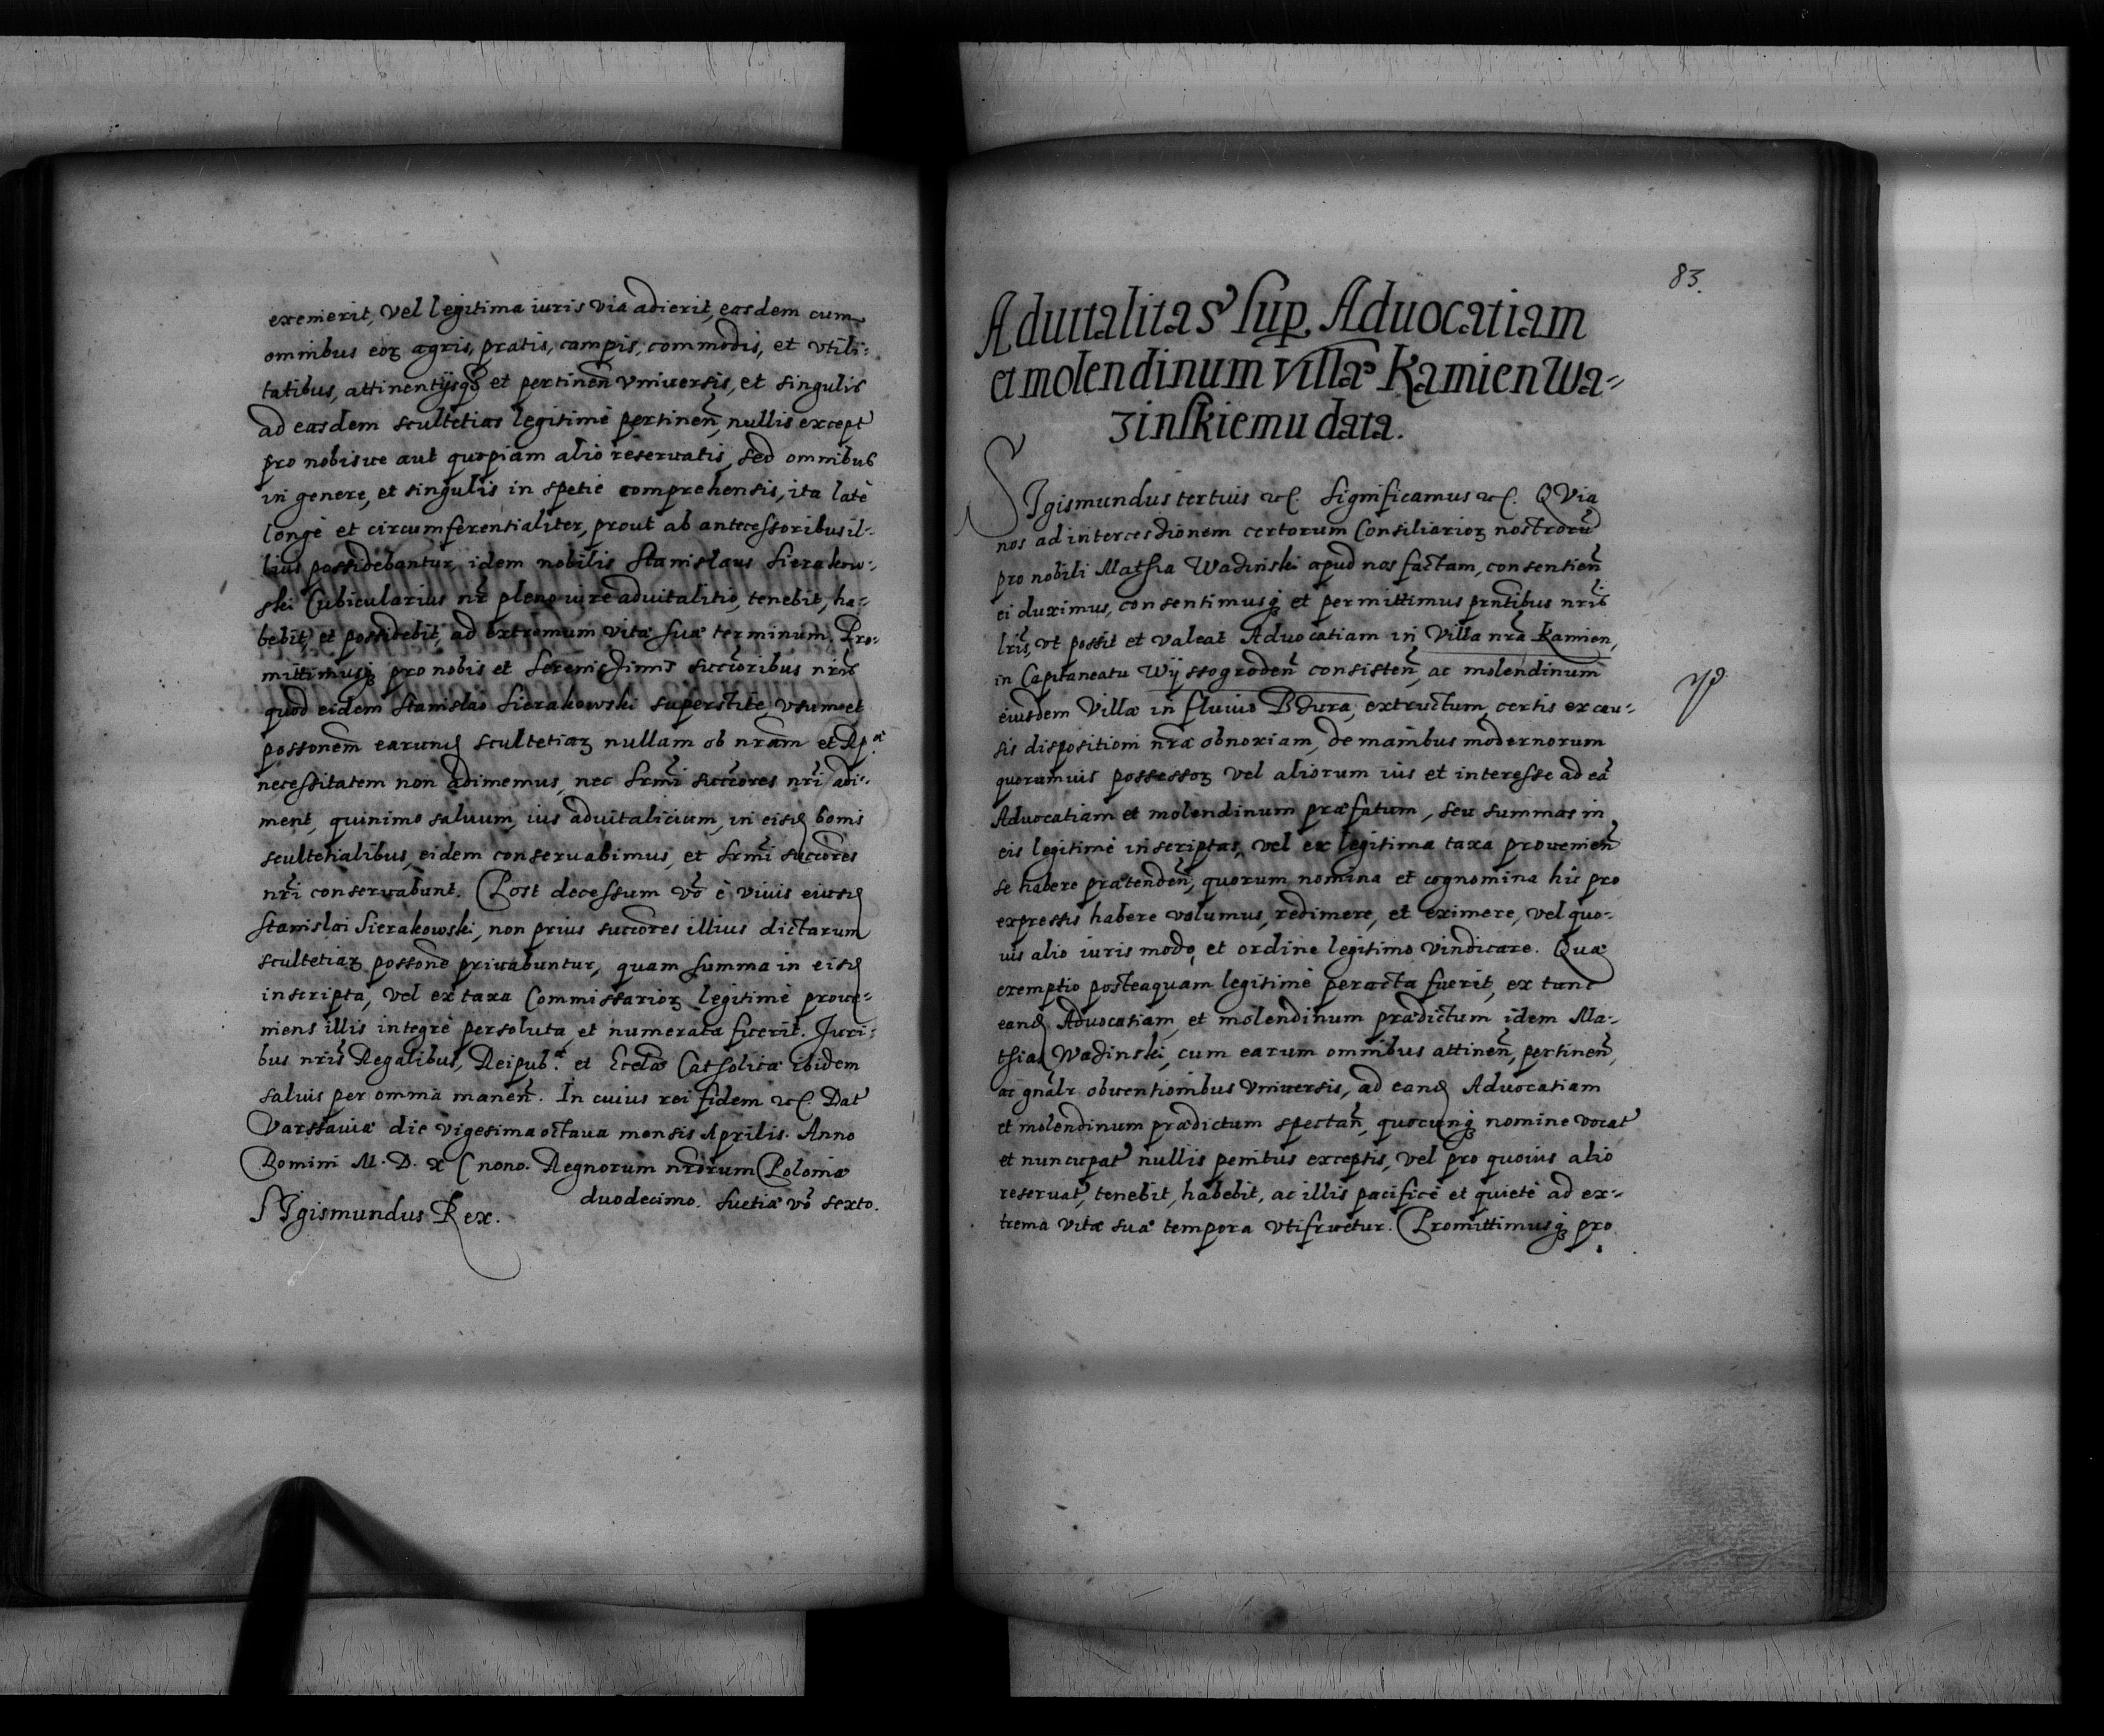 exemerit, vel legitima iuris via adierit, easdem cum
omnibus eoꝝ agris, pratis, campis, commodis, et vtili-
tatibus, attinentijsqꝫ et pertineñ vniuersis, et singulis
ad easdem scultetias legitimè pertineñ, nullis except
pro nobisue aut quopiam alio reseruatis, sed omnibus
in genere, et singulis in spetie comprehensis, ita latè
longè et circumferentialiter, prout ab antecessoribus il-
lius possidebantur, idem nobilis Stanislaus Sierakow-
ski Cubicularius nr̃ pleno iure aduitalitio, tenebit, ha-
bebit, et possidebit, ad extremum vitæ suæ terminum. Pro-
mittimusqꝫ pro nobis et Serenissimis succoribus nris
quod eidem Stanislao Sierakowski superstite, vsum et
possonem earund scultetiaꝝ nullam ob nram et Rpᵃ
necessitatem non adimemus, nec srmi succores nri adi-
ment, quinimo saluum, ius aduitalicium, in eisd bonis
scultetialibus, eidem conseruabimus, et srmi succores
nri conseruabunt. Post decessum vo è viuis eiusd
Stanislai Sierakowski, non prius succores illius dictarum
scultetiaꝝ possone priuabuntur, quam summa in eisd
inscripta, vel ex taxa Commissarioꝝ legitimè proue-
niens illis integrè persoluta, et numerata fuerit. Juri-
bus nris Regalibus, Reipub. et Eccla Catholicæ ibidem
saluis per omnia maneñ. In cuius rei fidem etc. Dat
Varssauiæ die vigesima octaua mensis Aprilis. Anno
Domini M. D. X C nono. Regnorum nrorum Poloniæ
duodecimo. Suetiæ vo sexto.
SIgismundus Rex.
83.
Aduitalitas sup Aduocatiam
et molendinum villæ Kamien Wa-
zinskiemu data.
SIgismundus tertius etc. Significamus etc. QVia
nos ad intercessionem certorum Consiliarioꝝ nostroru
pro nobili Mathia Wadzinski apud nos factam, consentieñ
ei duximus, consentimusqꝫ et permittimus prntibus nris
lris, vt possit et valeat Aduocatiam in Villa nra Kamien,
in Capitaneatu Wyssogrodeñ consisteñ, ac molendinum
eiusdem Villæ in fluuio Bzura, extructum, certis ex cau-
sis dispositioni nræ obnoxiam, de manibus modernorum
quorumuis possessoꝝ vel aliorum ius et interesse ad eã
Aduocatiam et molendinum præfatum, seu summas in
eis legitimè inscriptas, vel ex legitima taxa prouenieñ
se habere prætendeñ, quorum nomina et cognomina hic pro
expressis habere volumus, redimere, et eximere, vel quo-
uis alio iuris modo, et ordine legitimo vindicare. Quæ
exemptio posteaquam legitimè peracta fuerit, ex tunc
eand Aduocatiam, et molendinum prædictum idem Ma-
thias Wadzinski, cum earum omnibus attineñ, pertineñ,
ac gnalr obuentionibus vniuersis, ad eand Aduocatiam
et molendinum prædictum spectañ, quocunqꝫ nomine vocat
et nuncupat nullis penitus exceptis, vel pro quouis alio
reseruat, tenebit, habebit, ac illis pacificè et quietè ad ex-
trema vitæ suæ tempora vtifruetur. Promittimusqꝫ pro